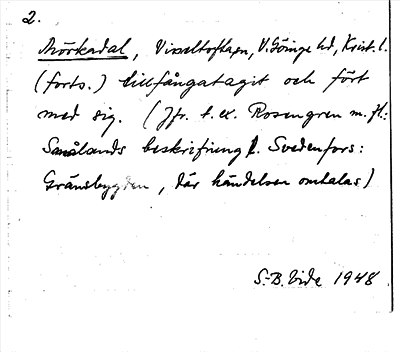 2.
Mörkadal, Visseltofta sn, V. Göinge hd, Krist. l.
(forts.) tillfångatagit och fört
med sig. (Jfr. t. ex. Rosengren m. fl:
Smålands beskrifning l. Svedenfors:
Gränsbygden, där händelsen omtalas)
S.-B. Vide 1948